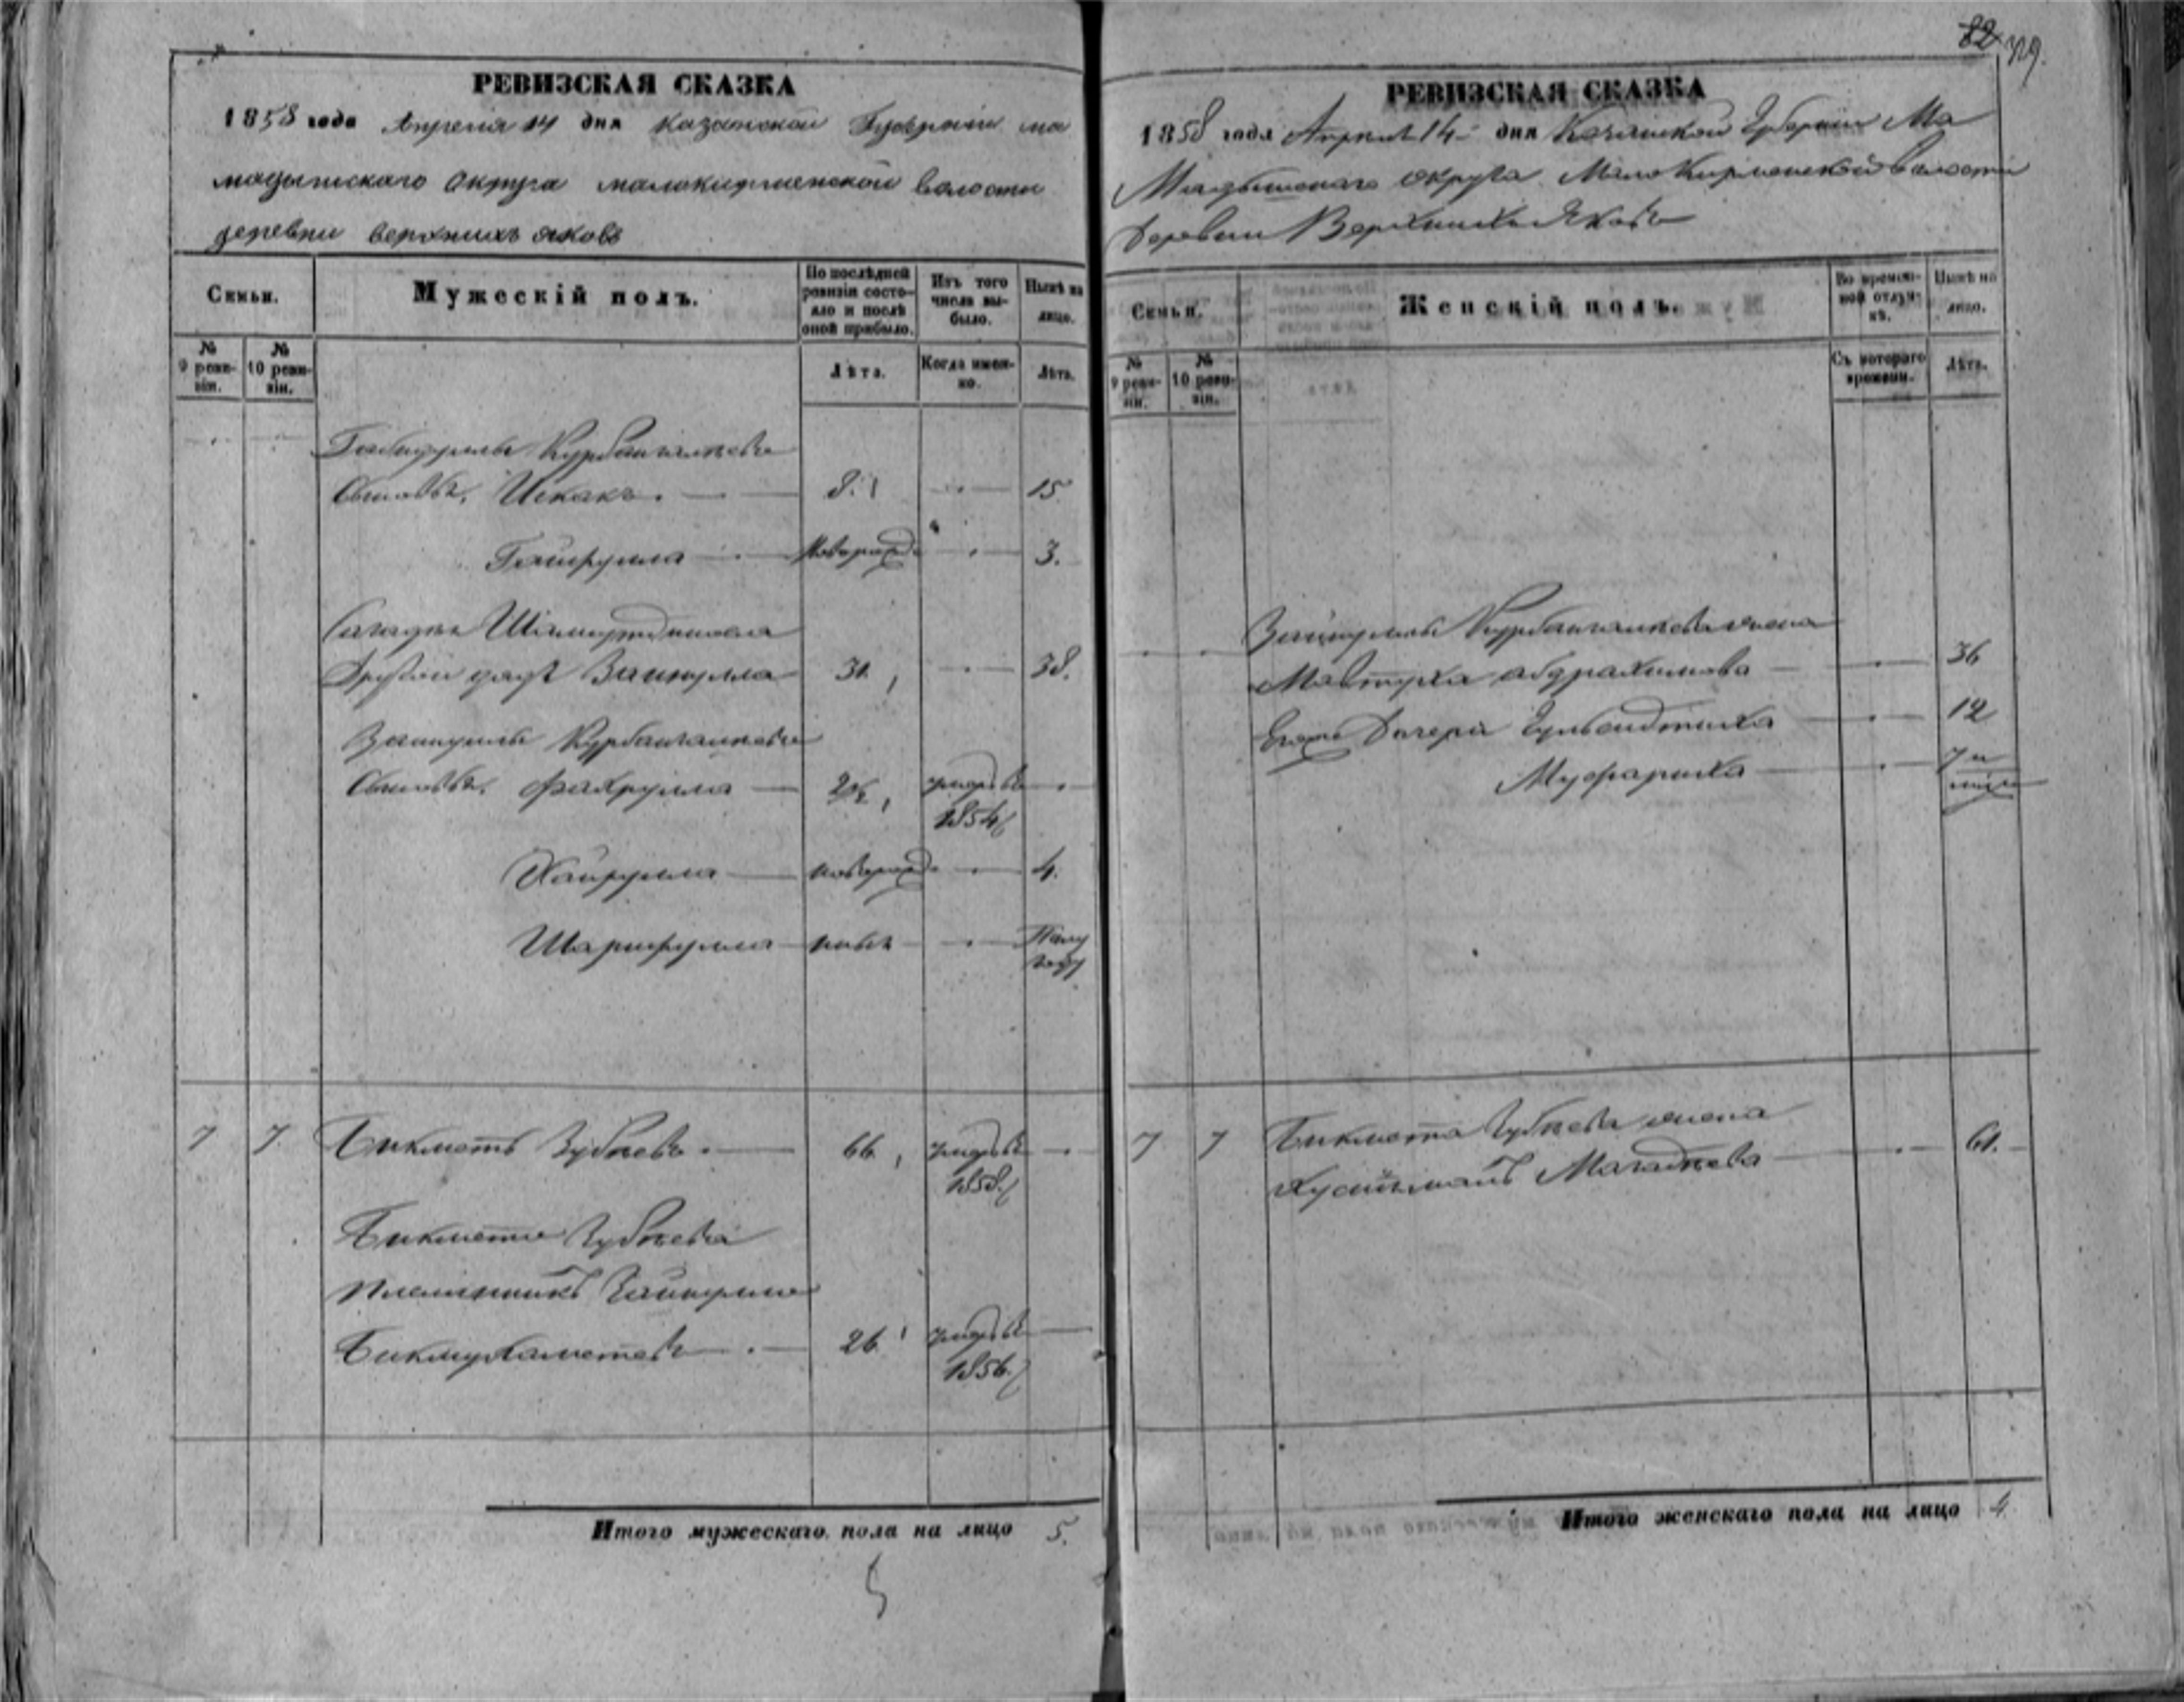 82
319.
РЕВИЗСКАЯ СКАЗКА
1858 года Апреля 14 дня Казанской Губернии Ма
мадышскаго Округа малокирменской волости
деревни верхнихъ яковъ
Семьи.
Мужескій полъ.
По послѣдней ревизіи состояло и послѣ оной прибыло.
Изъ того числа выбыло.
Нынѣ на лицо.
№ 9 ревизіи.
№ 10 ревизіи.
Лѣта.
Когда именно.
Лѣта.
Габидуллы Курбангалеева
Сыновья, Искакъ. 8. 15.
Гайфулла Новорожд 3.
Сагадея Шамсутдинова
Другой дядя Зайнулла 31, 38.
Зайнуллы Курбангалеева
Сыновья, Фахрулла умеръ въ
1854
Хайрулла новорожд 4.
Шарифулла новъ Полу
году
7 7 Бикметь Зубаевъ. 66, умеръ въ
1858.
Бикметя Зубаева
племянникъ Зайнулла
Бикмухаметевъ 26 умеръ въ
1856.
Итого мужескаго пола на лицо 5.
5
РЕВИЗСКАЯ СКАЗКА
1858 года Апреля 14 дня Казанской Губернии Ма
Мадышскаго округа Мало Кирменской волости
Деревни Верхнихъ Яковъ
Семьи.
Женскій полъ.
Во временной отлучкѣ.
Нынѣ на лицо.
№ 9 ревизіи.
№ 10 ревизіи.
Съ котораго времени.
Лѣта.
Зайнуллы Курбангалеева жена
Мавтуха абдрахимова 36
Егоже Дочери 12
Муфариха 7 м
7 7 Бикметя Зубаева жена
Магадеева 61.
Итого женскаго пола на лицо 4.